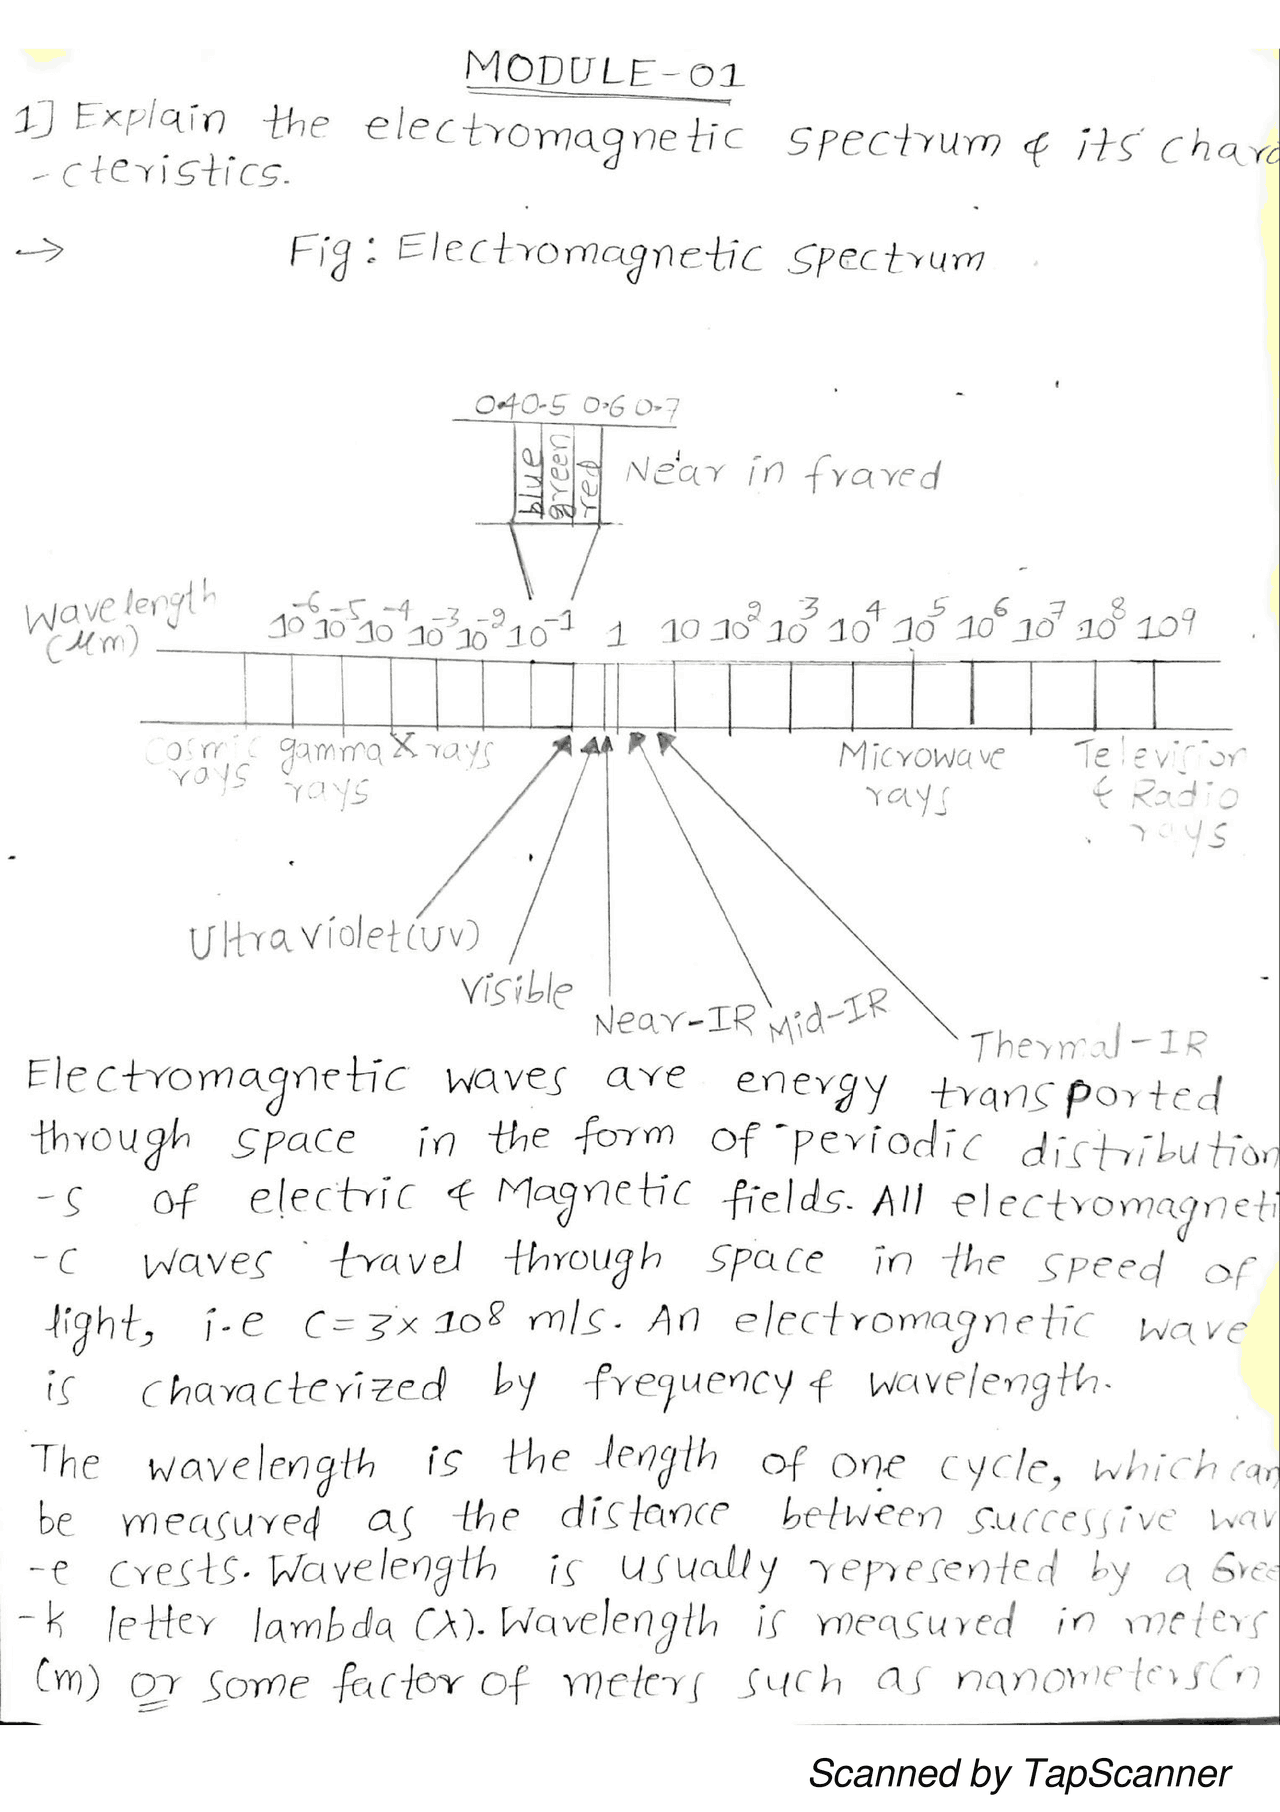 MODULE-01
1] Explain the electromagnetic spectrum & its chara
-cteristics.
→ Fig: Electromagnetic spectrum
0.4 0.5 0.6 0.7
blue green red Near in frared
Wavelength
(μm)
10⁻⁶ 10⁻⁵ 10⁻⁴ 10⁻³ 10⁻² 10⁻¹ 1 10 10² 10³ 10⁴ 10⁵ 10⁶ 10⁷ 10⁸ 10⁹
Cosmic rays gamma rays X rays Microwave rays Television & Radio rays
Ultraviolet(UV)
Visible
Near-IR Mid-IR
Thermal-IR
Electromagnetic waves are energy transported
through space in the form of periodic distribution
-s of electric & Magnetic fields. All electromagneti
-c waves travel through space in the speed of
light, i.e C=3×10⁸ m/s. An electromagnetic wave
is characterized by frequency & wavelength.
The wavelength is the length of one cycle, which can
be measured as the distance between successive wav
-e crests. Wavelength is usually represented by a Gree
-k letter lambda (λ). Wavelength is measured in meters
(m) or some factor of meters such as nanometers(n
Scanned by TapScanner